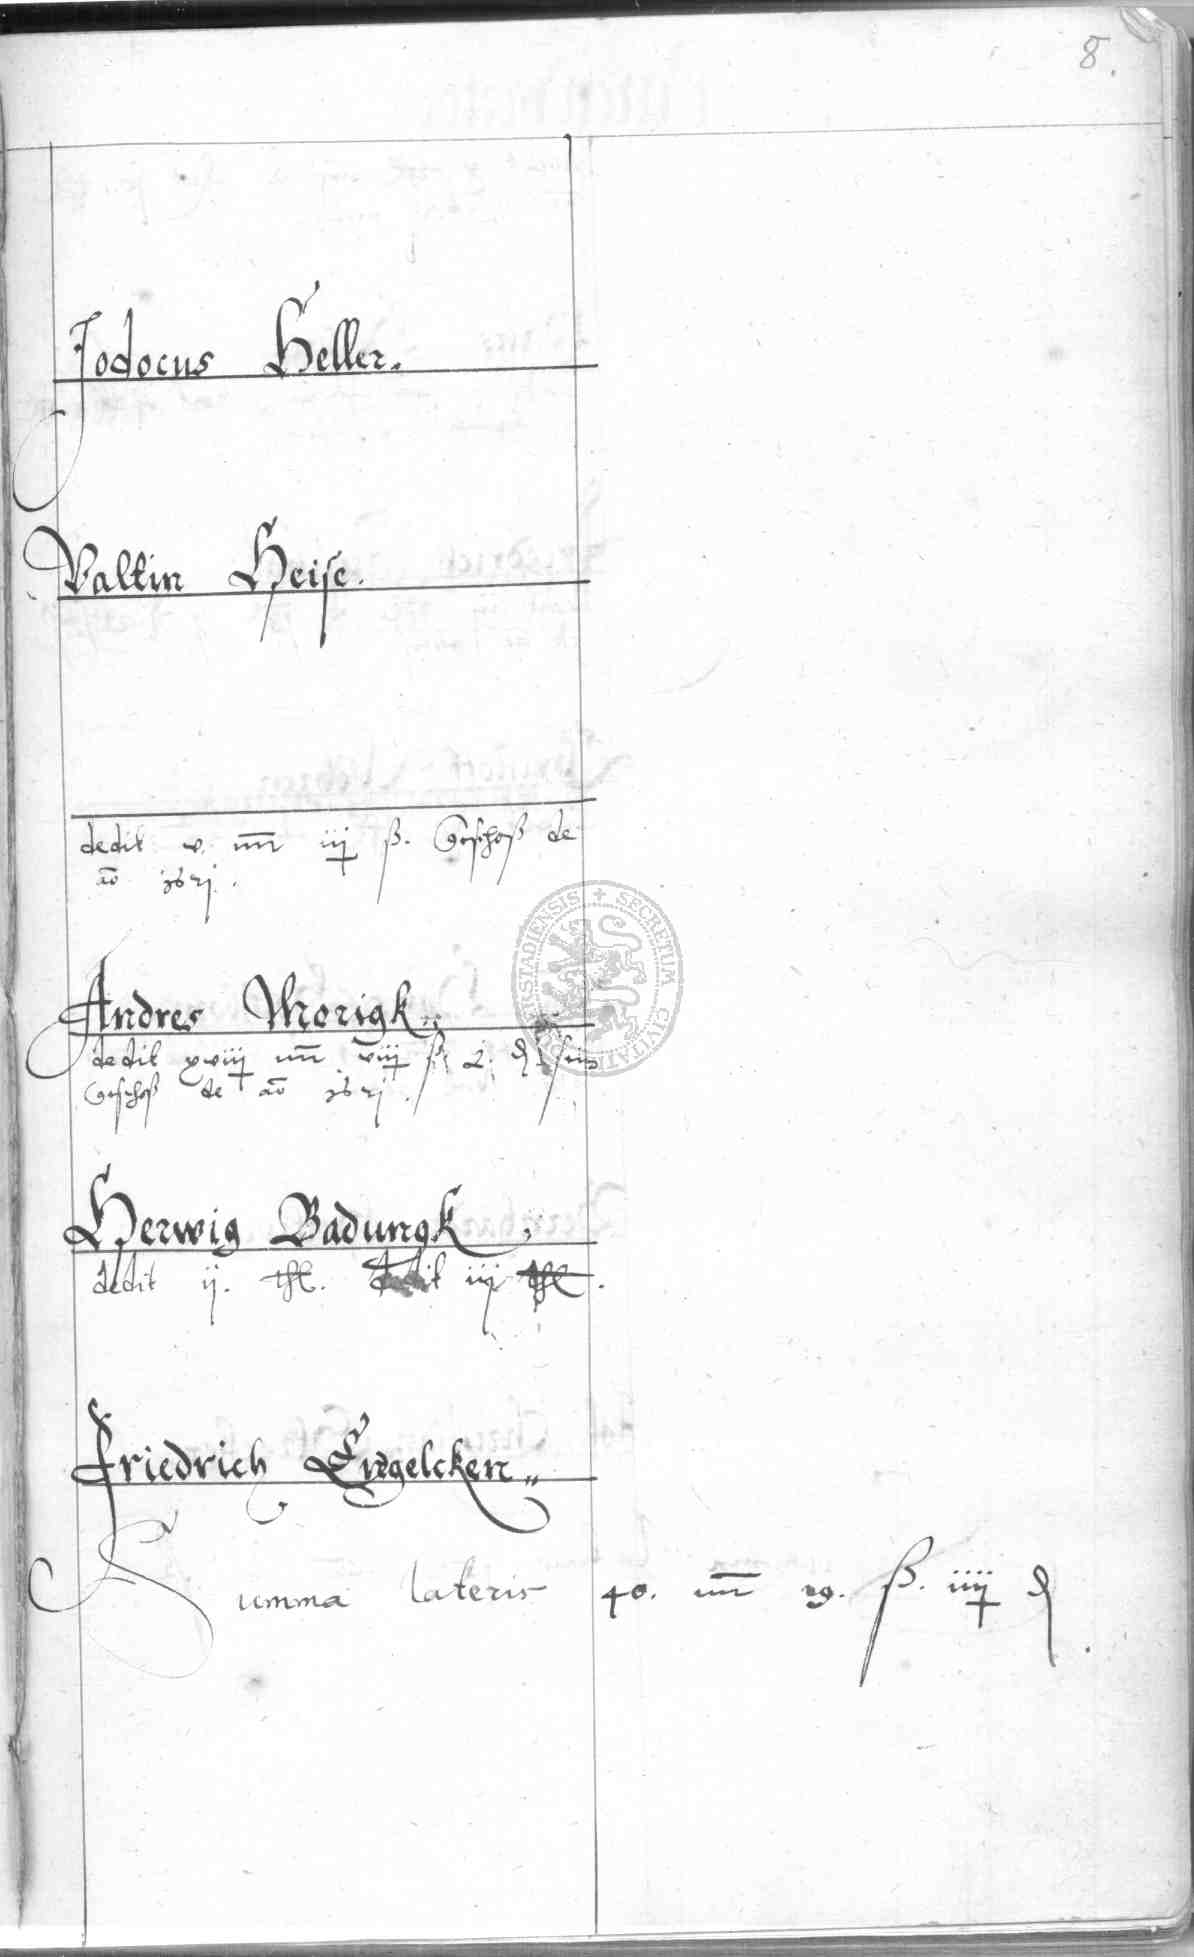 8.
Jodocus Heller.
Valtin Heise.
dedit v. iij ß. Geschoß de
ao 1621.
Andres Morigk.
dedit xviij viij ß 2. ₰ sein
Geschoß de ao 1621.
SECRETUM CIVITATIS DUDERSTADIENSIS
Herwig Badungk,
dedit ij. thl. dedit iiij thl.
Friedrich Engelcken
Summa lateris 40. 19. ß. iiij ₰